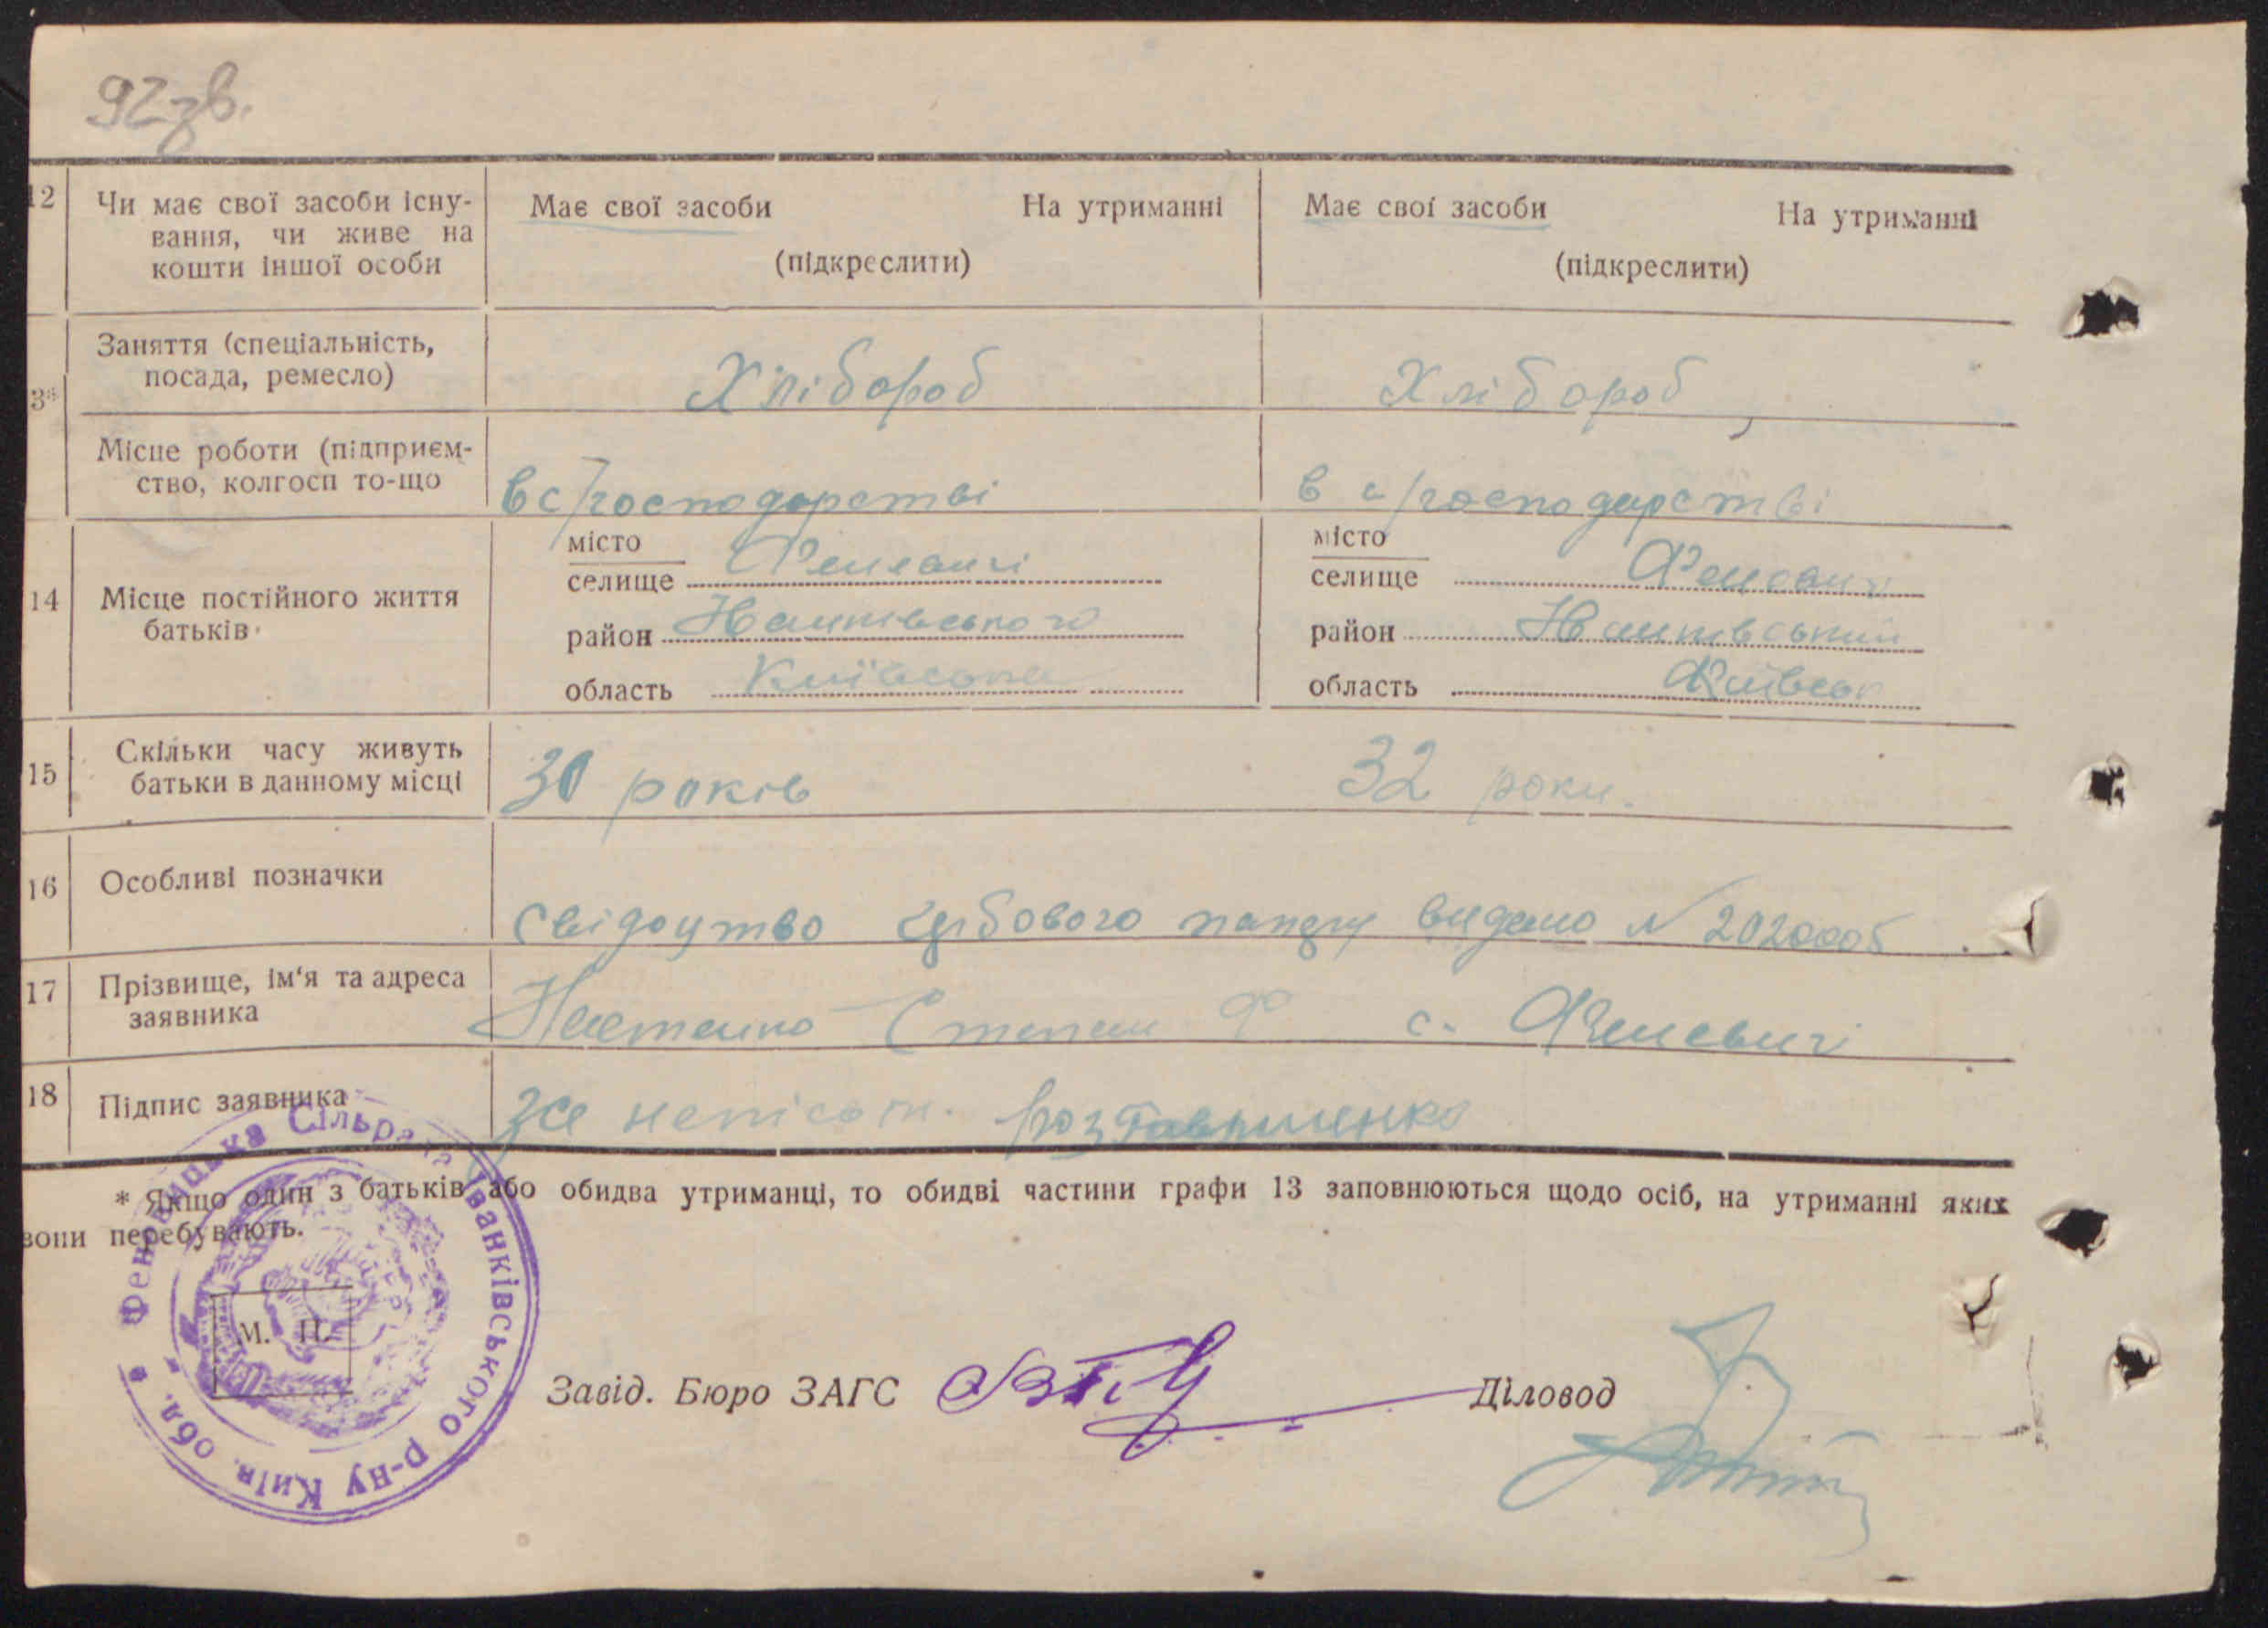 92зв.
12 Чи має свої засоби існу-
вання, чи живе на
кошти іншої особи
Має свої засоби На утриманні
(підкреслити)
Має свої засоби На утриманні
(підкреслити)
3* Заняття (спеціальність,
посада, ремесло)
Хлібороб
Хлібороб
Місце роботи (підприєм-
ство, колгосп то-що
в с/господарстві
в с/господарстві
14 Місце постійного життя
батьків
місто
селище Феневичі
район
область Київська
місто
селище Феневичі
район
область Київськ
15 Скільки часу живуть
батьки в данному місці
30 років
32 роки.
16 Особливі позначки
Свідоцтво видано N 2020005
17 Прізвище, ім'я та адреса
заявника
Степан Ф с. Феневичі
18 Підпис заявника
За
* Якщо один з батьків або обидва утриманці, то обидві частини графи 13 заповнюються щодо осіб, на утриманні яких
вони перебувають.
Сільрада Іванківського р-ну Київ. обл.
М. П.
Завід. Бюро ЗАГС
Діловод